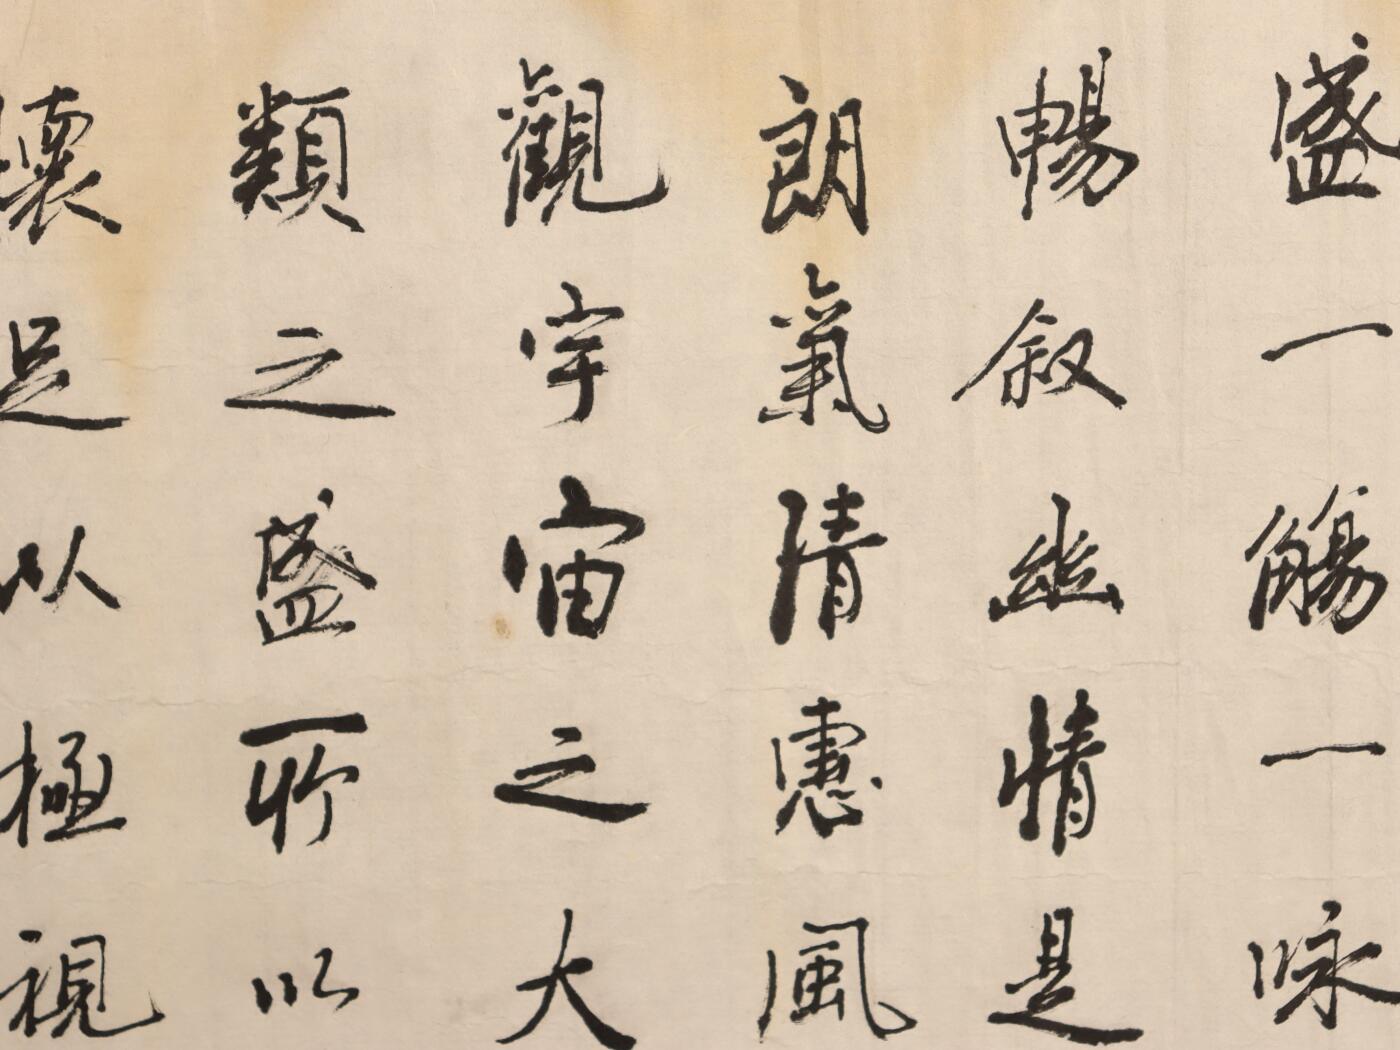 盛一觴一咏
暢叙幽情是
朗氣清惠風
觀宇宙之大
類之盛所以
懷足以極視